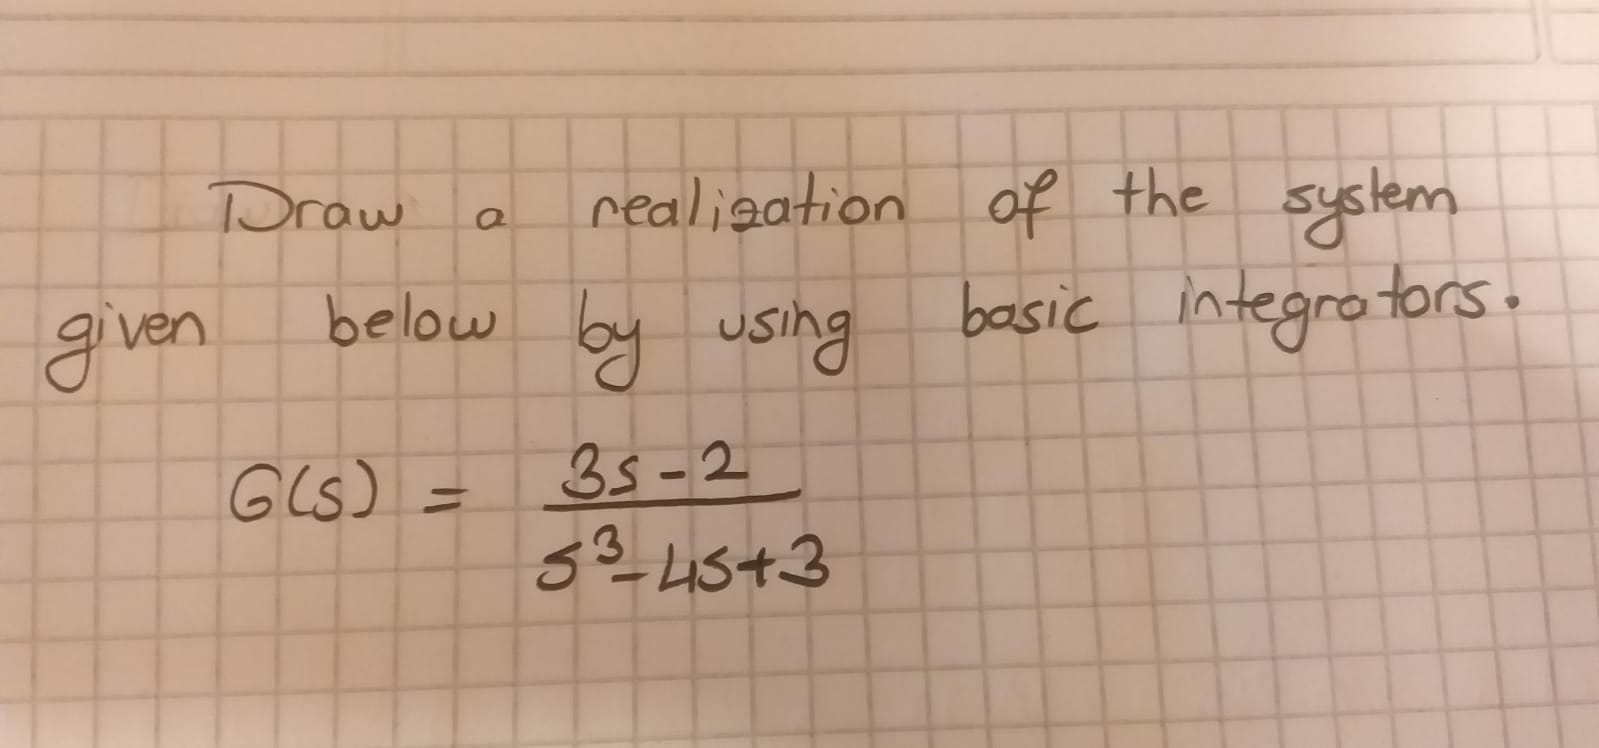 Draw a realization of the system
given below by using basic integrators.
G(s) = 3s-2
s³-4s+3